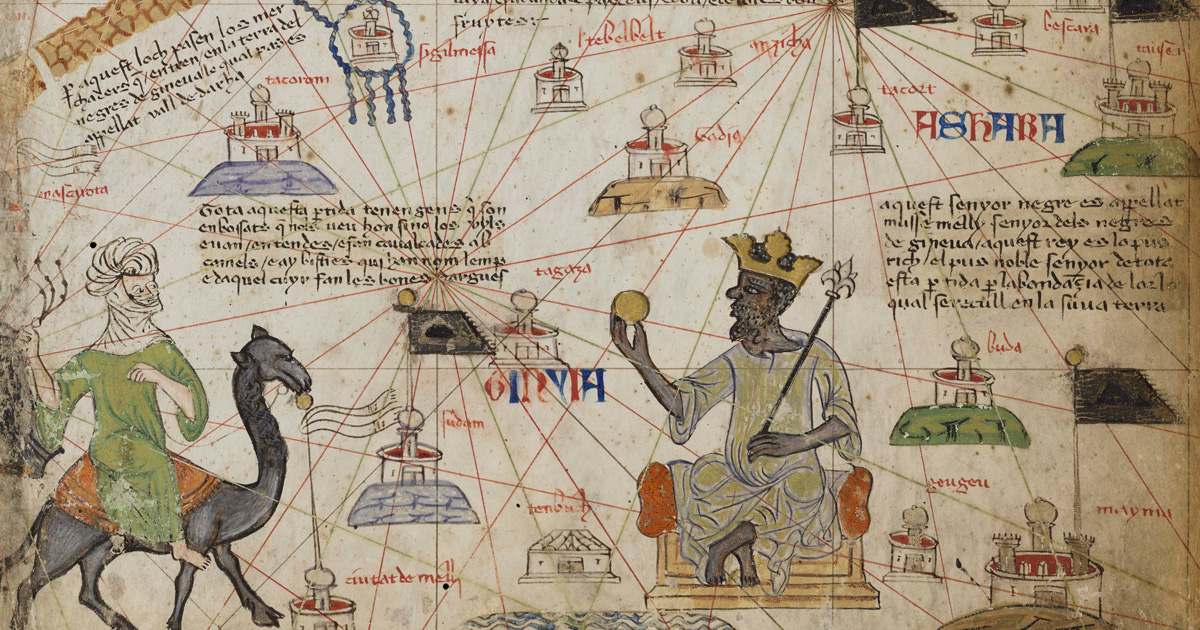 fruytes
p aquest loch pasen los mer
chaders q̄ entren en la terra del
negres de gineua lo qual pas es
appellat vall de darha
sigilmessa
tebelbelt
bescara
tacorom
tacort
ASHARA
Tota aquesta ptida tenen gens q̄ son
enboṫats q̄ nols veu hom sino los uyls
e van en tendes e fan caualcades ab
camels e ay bisties qui han nom lemp
e daquel cuyr fan les bones dargues
aquest senyor negre es appellat
musse melly senyor dels negres
de gineua aquest rey es lo pus
rich el pus noble senyor de tota
esta ptida p labondacia de lor lo
qual se recull en la suua terra
tagaza
buda
GINYIA
sudam
tenbuch
geugeu
mayma
ciutat de melly